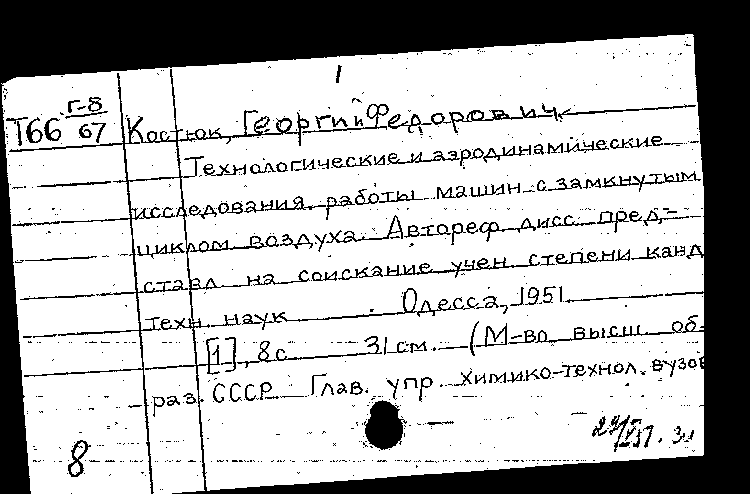 1
Г-8
Т66 67 Костюк, Георгий Федорович
Технологические и аэродинамические
исследования работы машин с замкнутым
циклом воздуха. Автореф. дисс. пред,-
ставл на соискание учен степени канд
техн. наук. Одесса, 1951.
[1], 8 с. 31 см. (М-во высш. об-
раз. СССР. Глав. упр. химико-технол. вузов
8